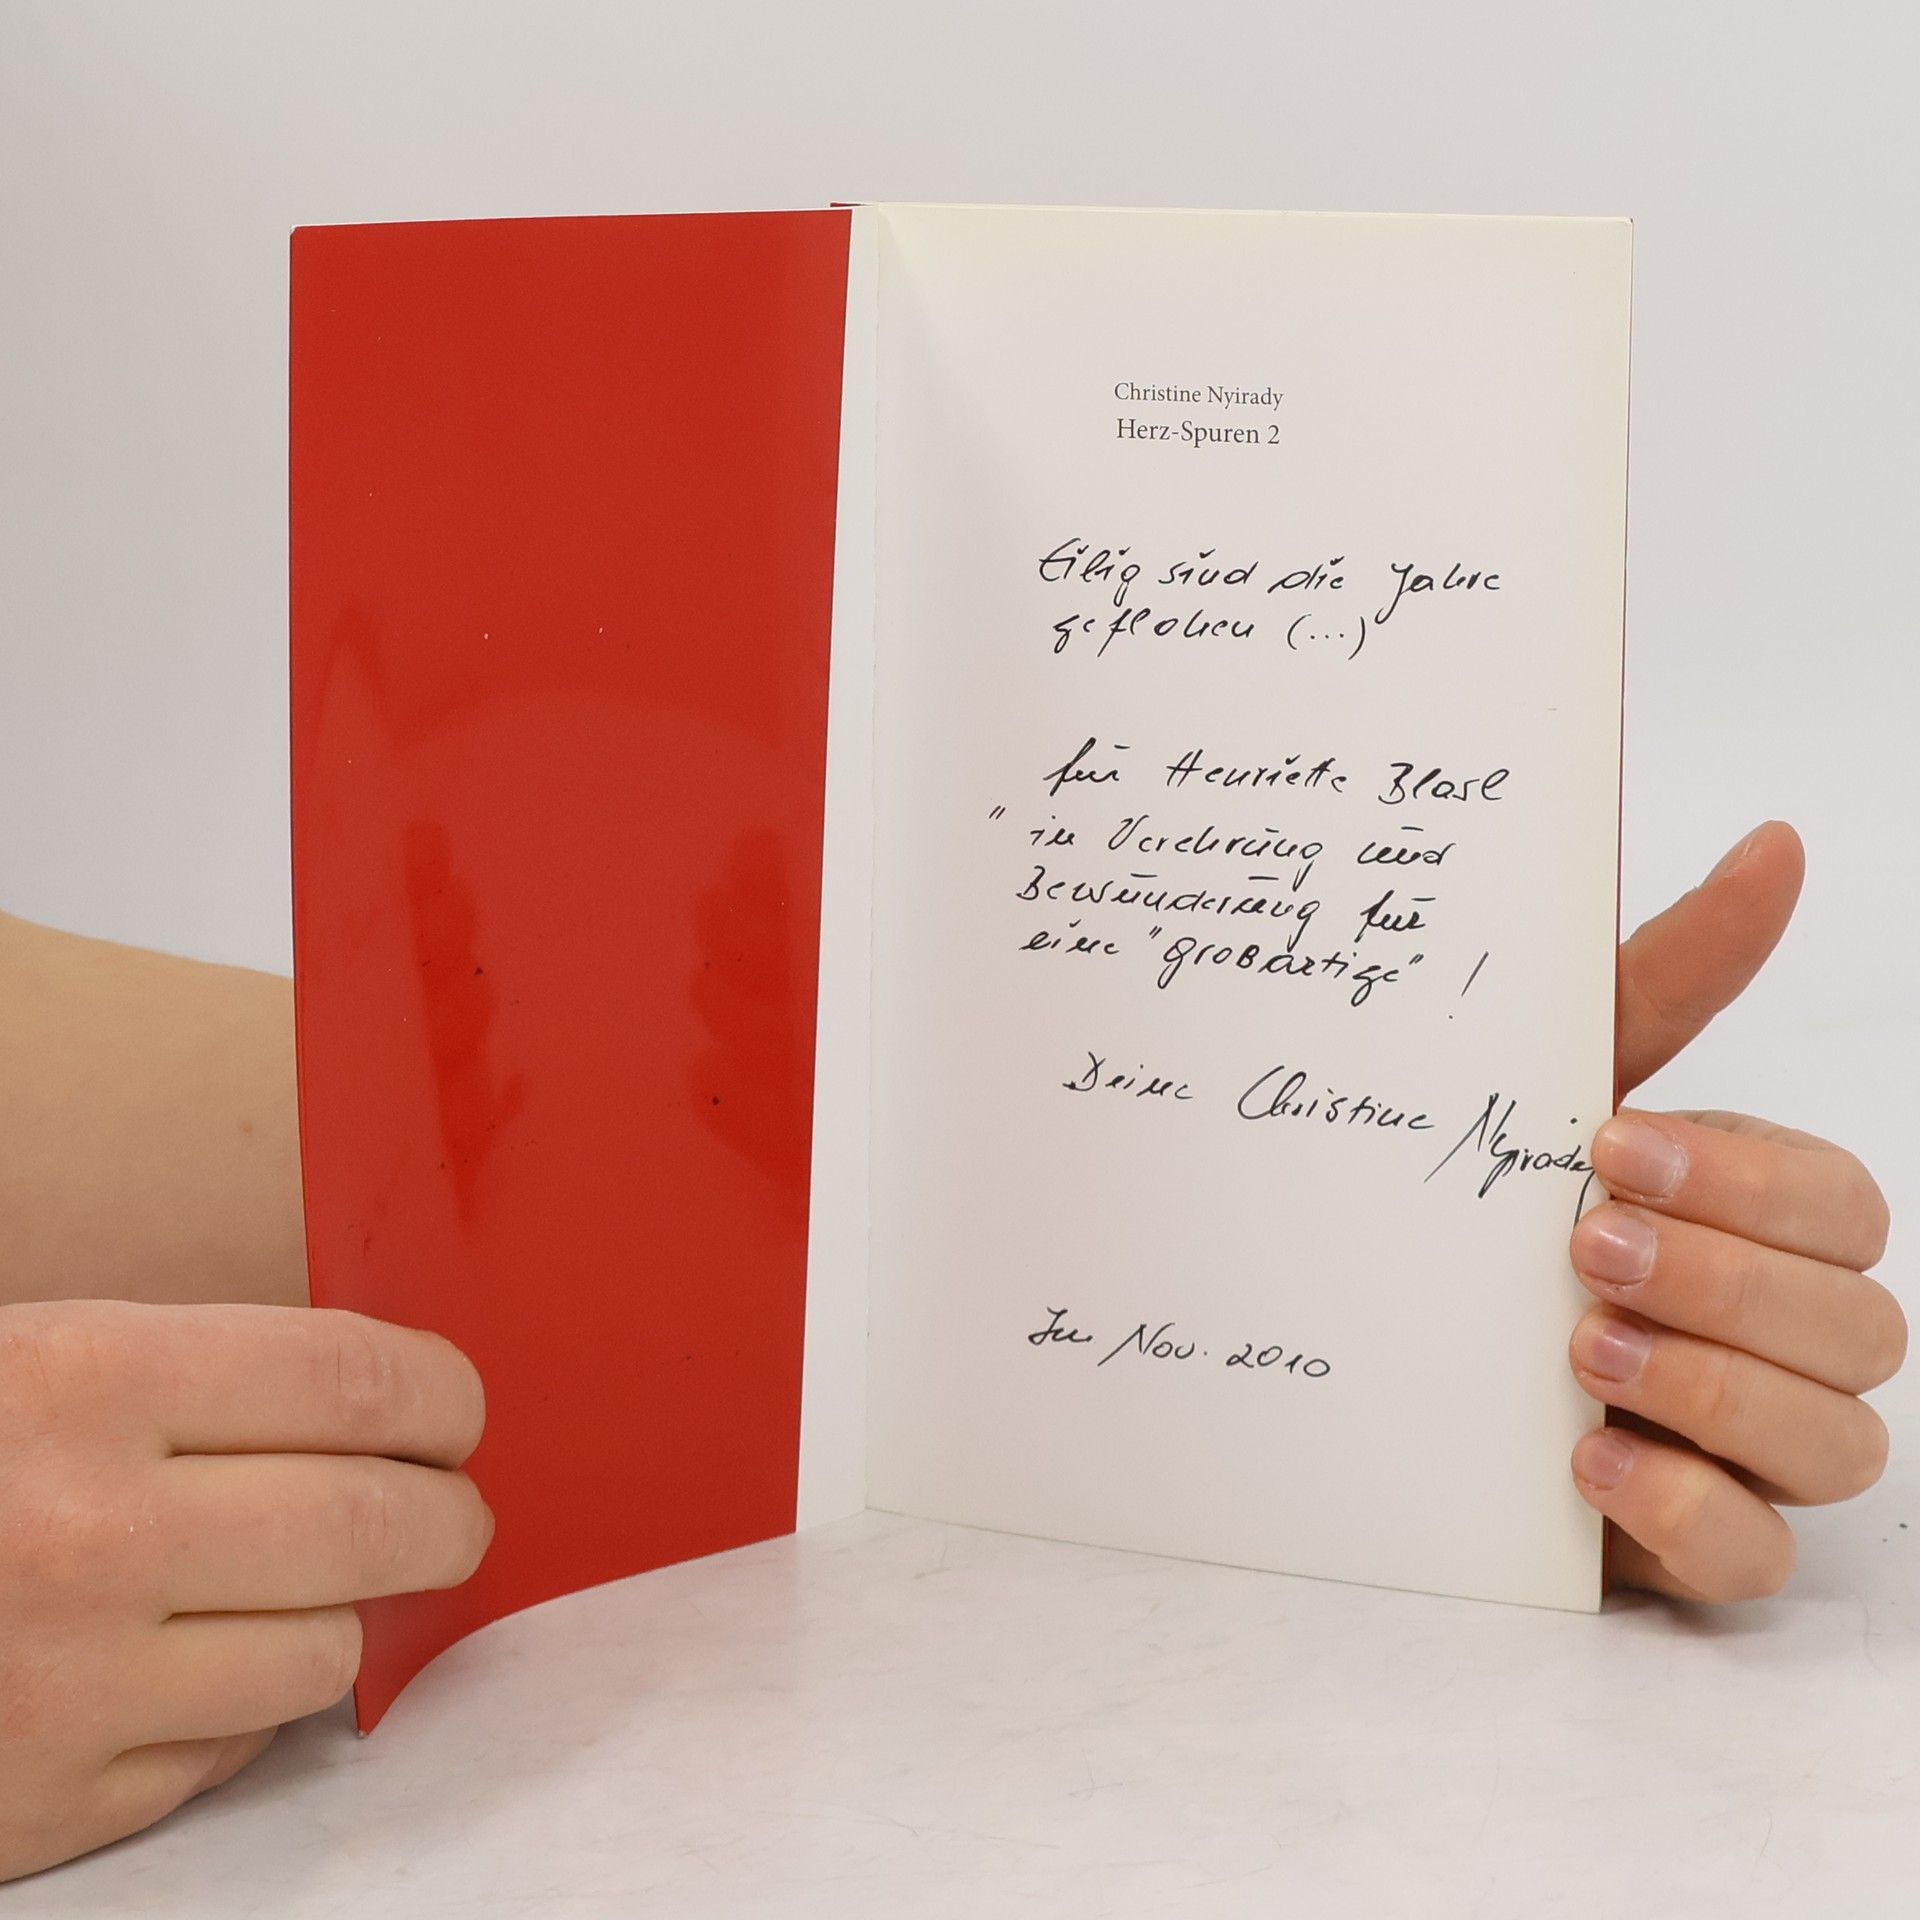 Christine Nyirady
Herz-Spuren 2
Eilig sind die Jahre
geflohen (...)
für Henriette Blasl
" in Verehrung und
Bewunderung für
eine "Großartige" !
Deine Christine Nyirady
Im Nov. 2010